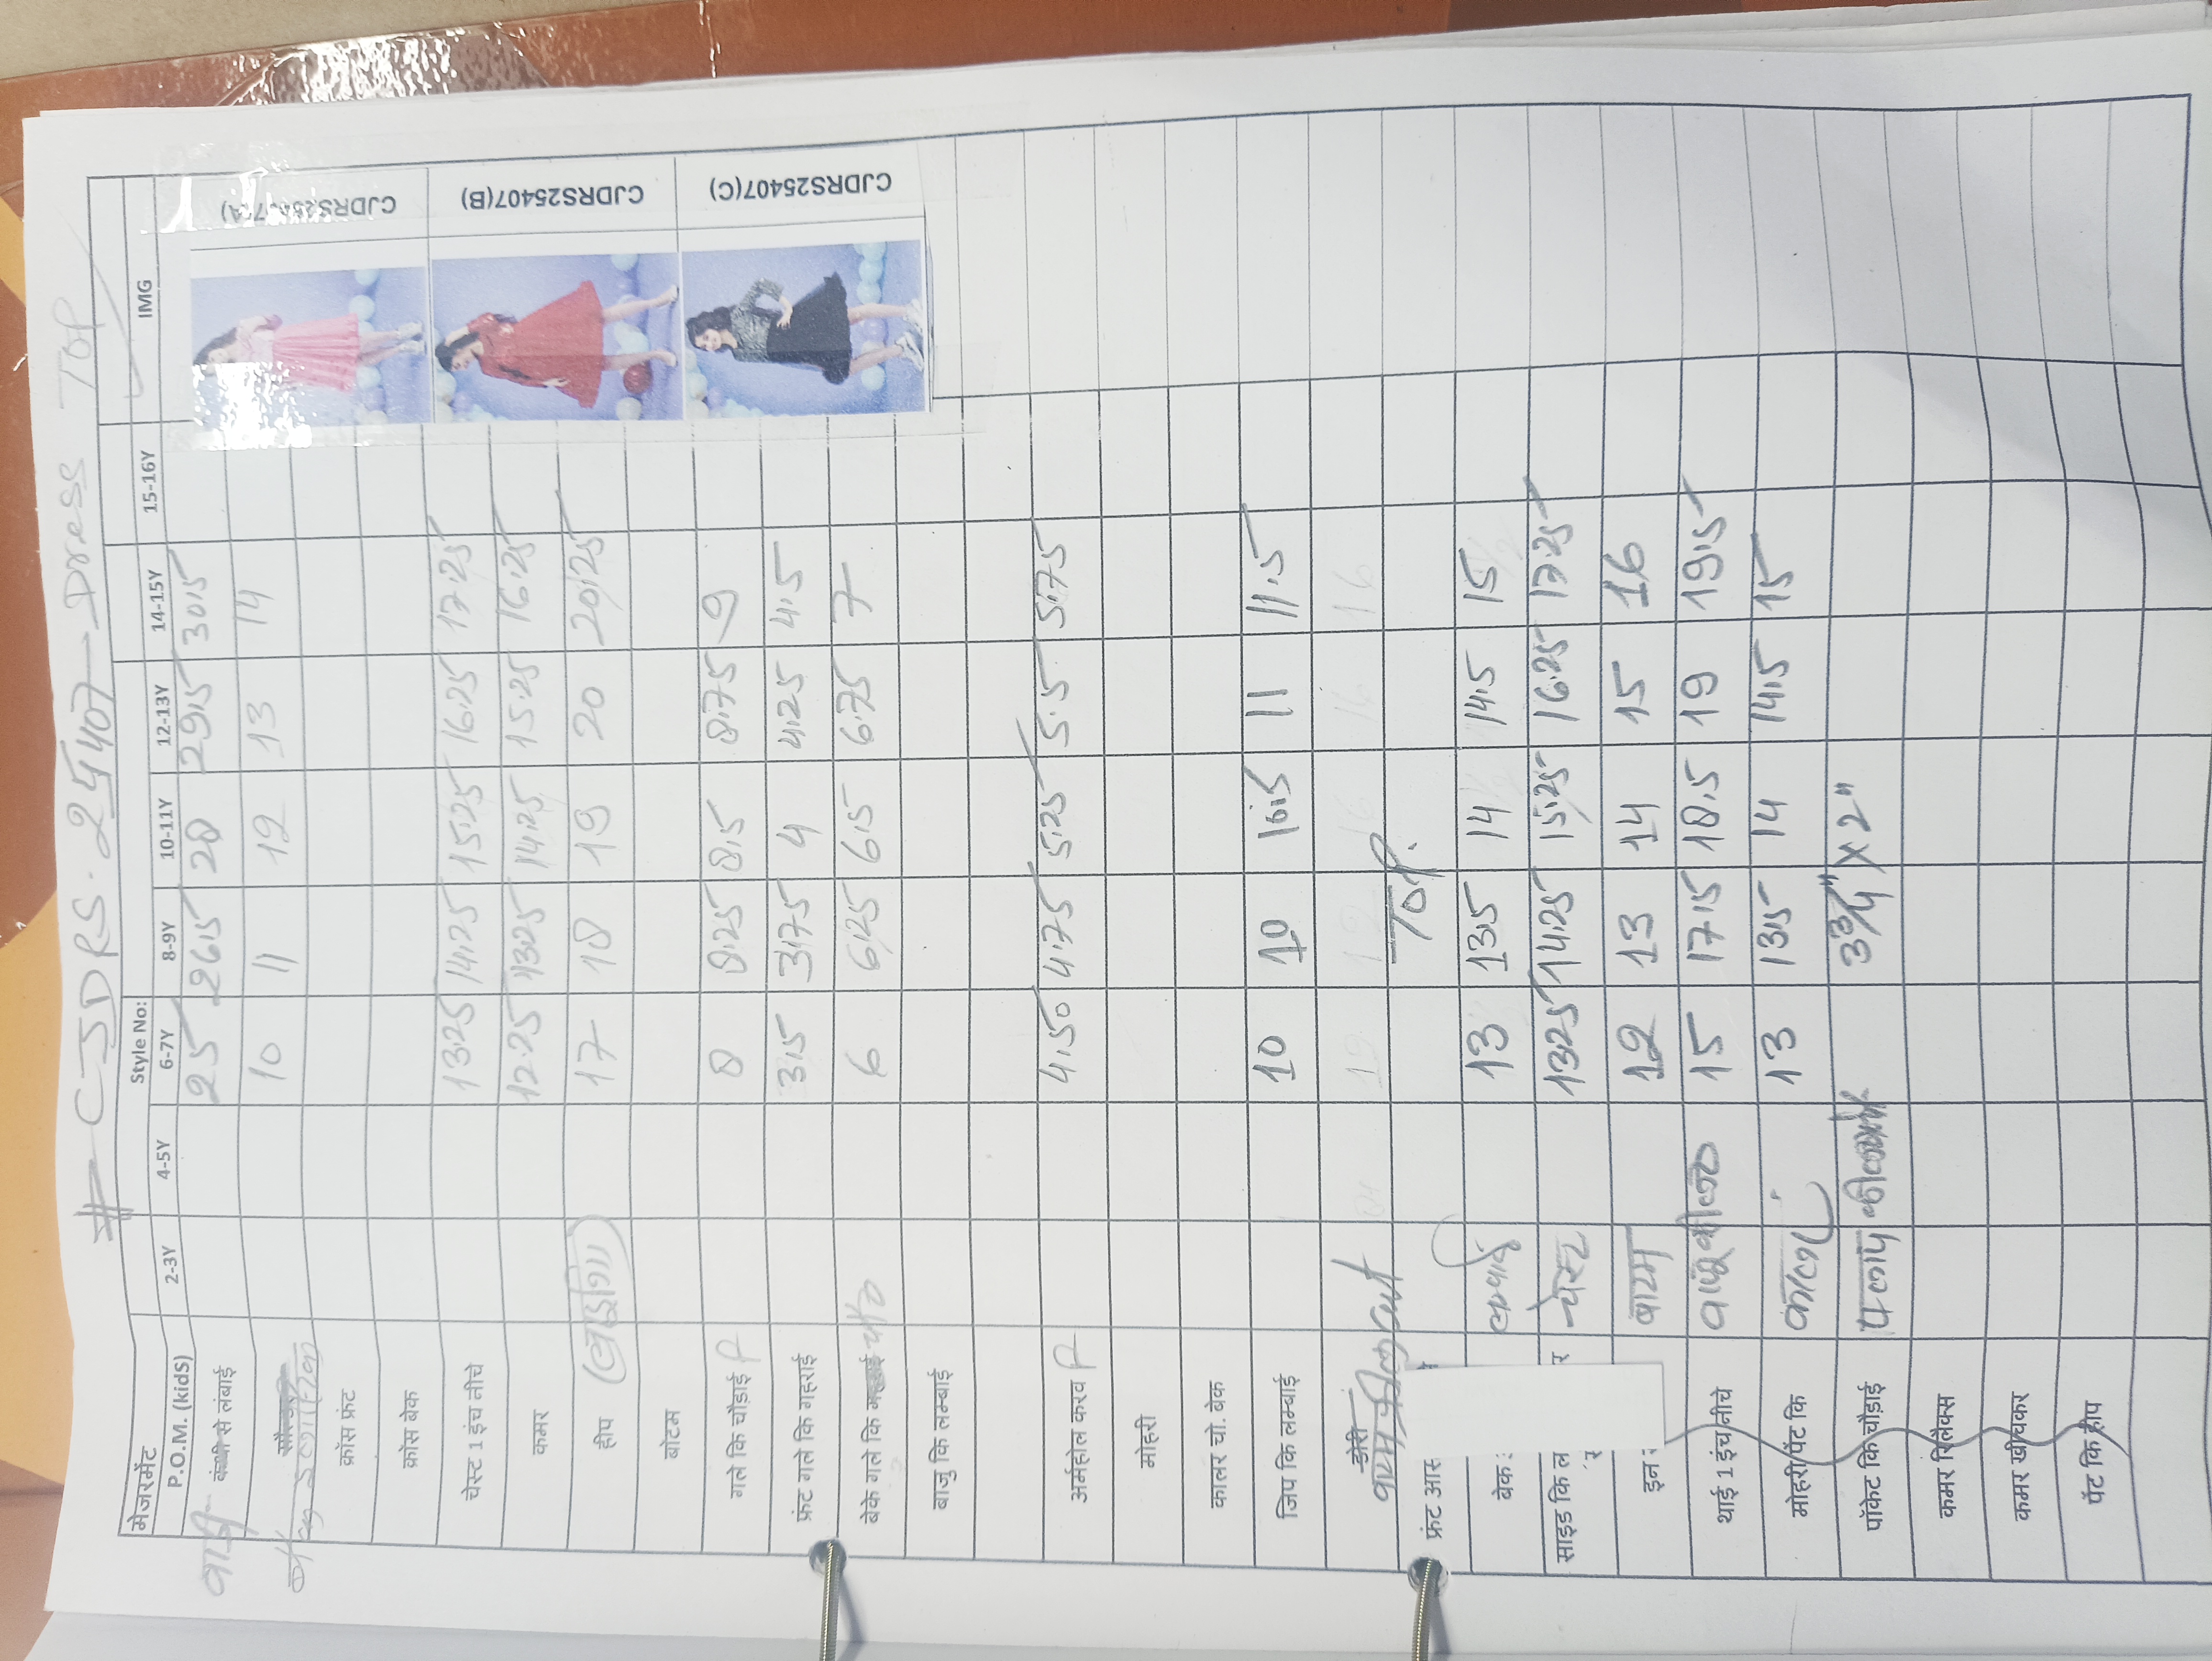 # CJDRS. 25407 Dress TOP
मेजरमेंट Style No: IMG
P.O.M. (kidS) 2-3Y 4-5Y 6-7Y 8-9Y 10-11Y 12-13Y 14-15Y 15-16Y
से लंबाई 25 26.5 28 29.5 30.5
10 11 12 13 14
क्रॉस फ्रंट
क्रॉस बेक
चेस्ट 1 इंच नीचे 13.25 14.25 15.25 16.25 17.25
कमर 12.25 13.25 14.25 15.25 16.25
हीप 17 18 19 20 20.25
बॉटम
गले कि चौड़ाई 8 8.25 8.5 8.75 9
फ्रंट गले कि गहराई 3.5 3.75 4 4.25 4.5
बेक गले कि 6 6.25 6.5 6.75 7
बाजु कि लम्बाई
अर्महोल करव 4.50 4.75 5.25 5.5 5.75
मोहरी
कालर चो. बेक
जिप कि लम्बाई 10 10 10.5 11 11.5
डोरी
TOP.
फ्रंट आस
बेक : लम्बाई 13 13.5 14 14.5 15
साइड कि ल चेस्ट 13.25 14.25 15.25 16.25 17.25
इन बाटम 12 13 14 15 16
थाई 1 इंच नीचे 15 17.5 18.5 19 19.5
मोहरी/पेंट कि 13 13.5 14 14.5 15
पॉकेट कि चौड़ाई 3 3/4" X 2"
कमर रिलैक्स
कमर खीचकर
पेंट कि हीप
CJDRS25407(A)
CJDRS25407(B)
CJDRS25407(C)